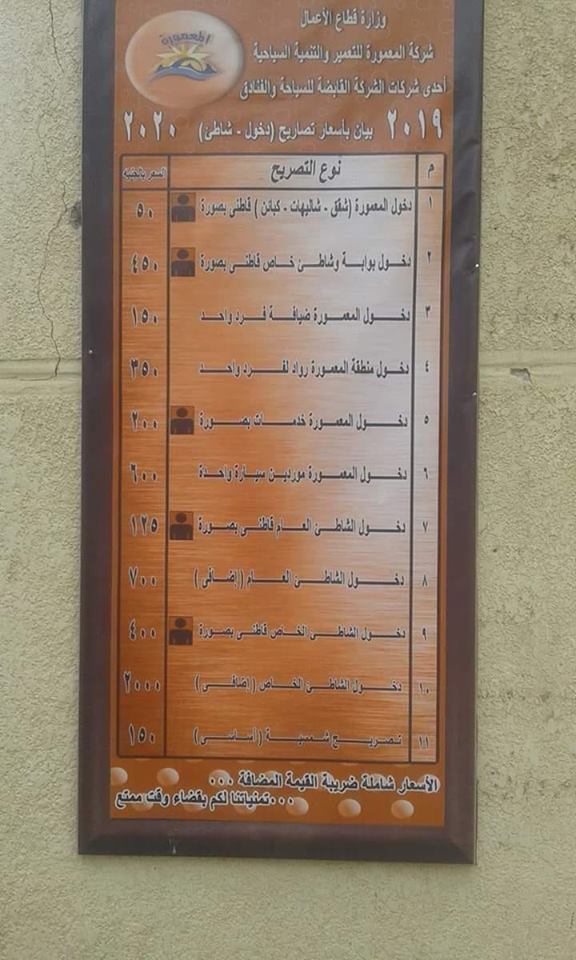 المعمورة
وزارة قطاع الأعمال
شركة المعمورة للتعمير والتنمية السياحية
أحدى شركات الشركة القابضة للسياحة والفنادق
٢٠١٩ بيان بأسعار تصاريح (دخول - شاطئ) ٢٠٢٠
م نوع التصريح السعر بالجنيه
١ دخول المعمورة (شقق - شاليهات - كبائن) قاطنى بصورة ٥٠
٢ دخول بوابة وشاطئ خاص قاطنى بصورة ٤٥٠
٣ دخول المعمورة ضيافة فرد واحد ١٥٠
٤ دخول منطقة المعمورة رواد لفرد واحد ٣٥٠
٥ دخول المعمورة خدمات بصورة ٢٠٠
٦ دخول المعمورة موردين سيارة واحدة ٦٠٠
٧ دخول الشاطئ العام قاطنى بصورة ١٢٥
٨ دخول الشاطئ العام (إضافى) ٧٠٠
٩ دخول الشاطئ الخاص قاطنى بصورة ٤٠٠
١٠ دخول الشاطئ الخاص (إضافى) ٢٠٠٠
١١ تصريح شمسية (أساسى) ١٥٠
الأسعار شاملة ضريبة القيمة المضافة ...
...تمنياتنا لكم بقضاء وقت ممتع